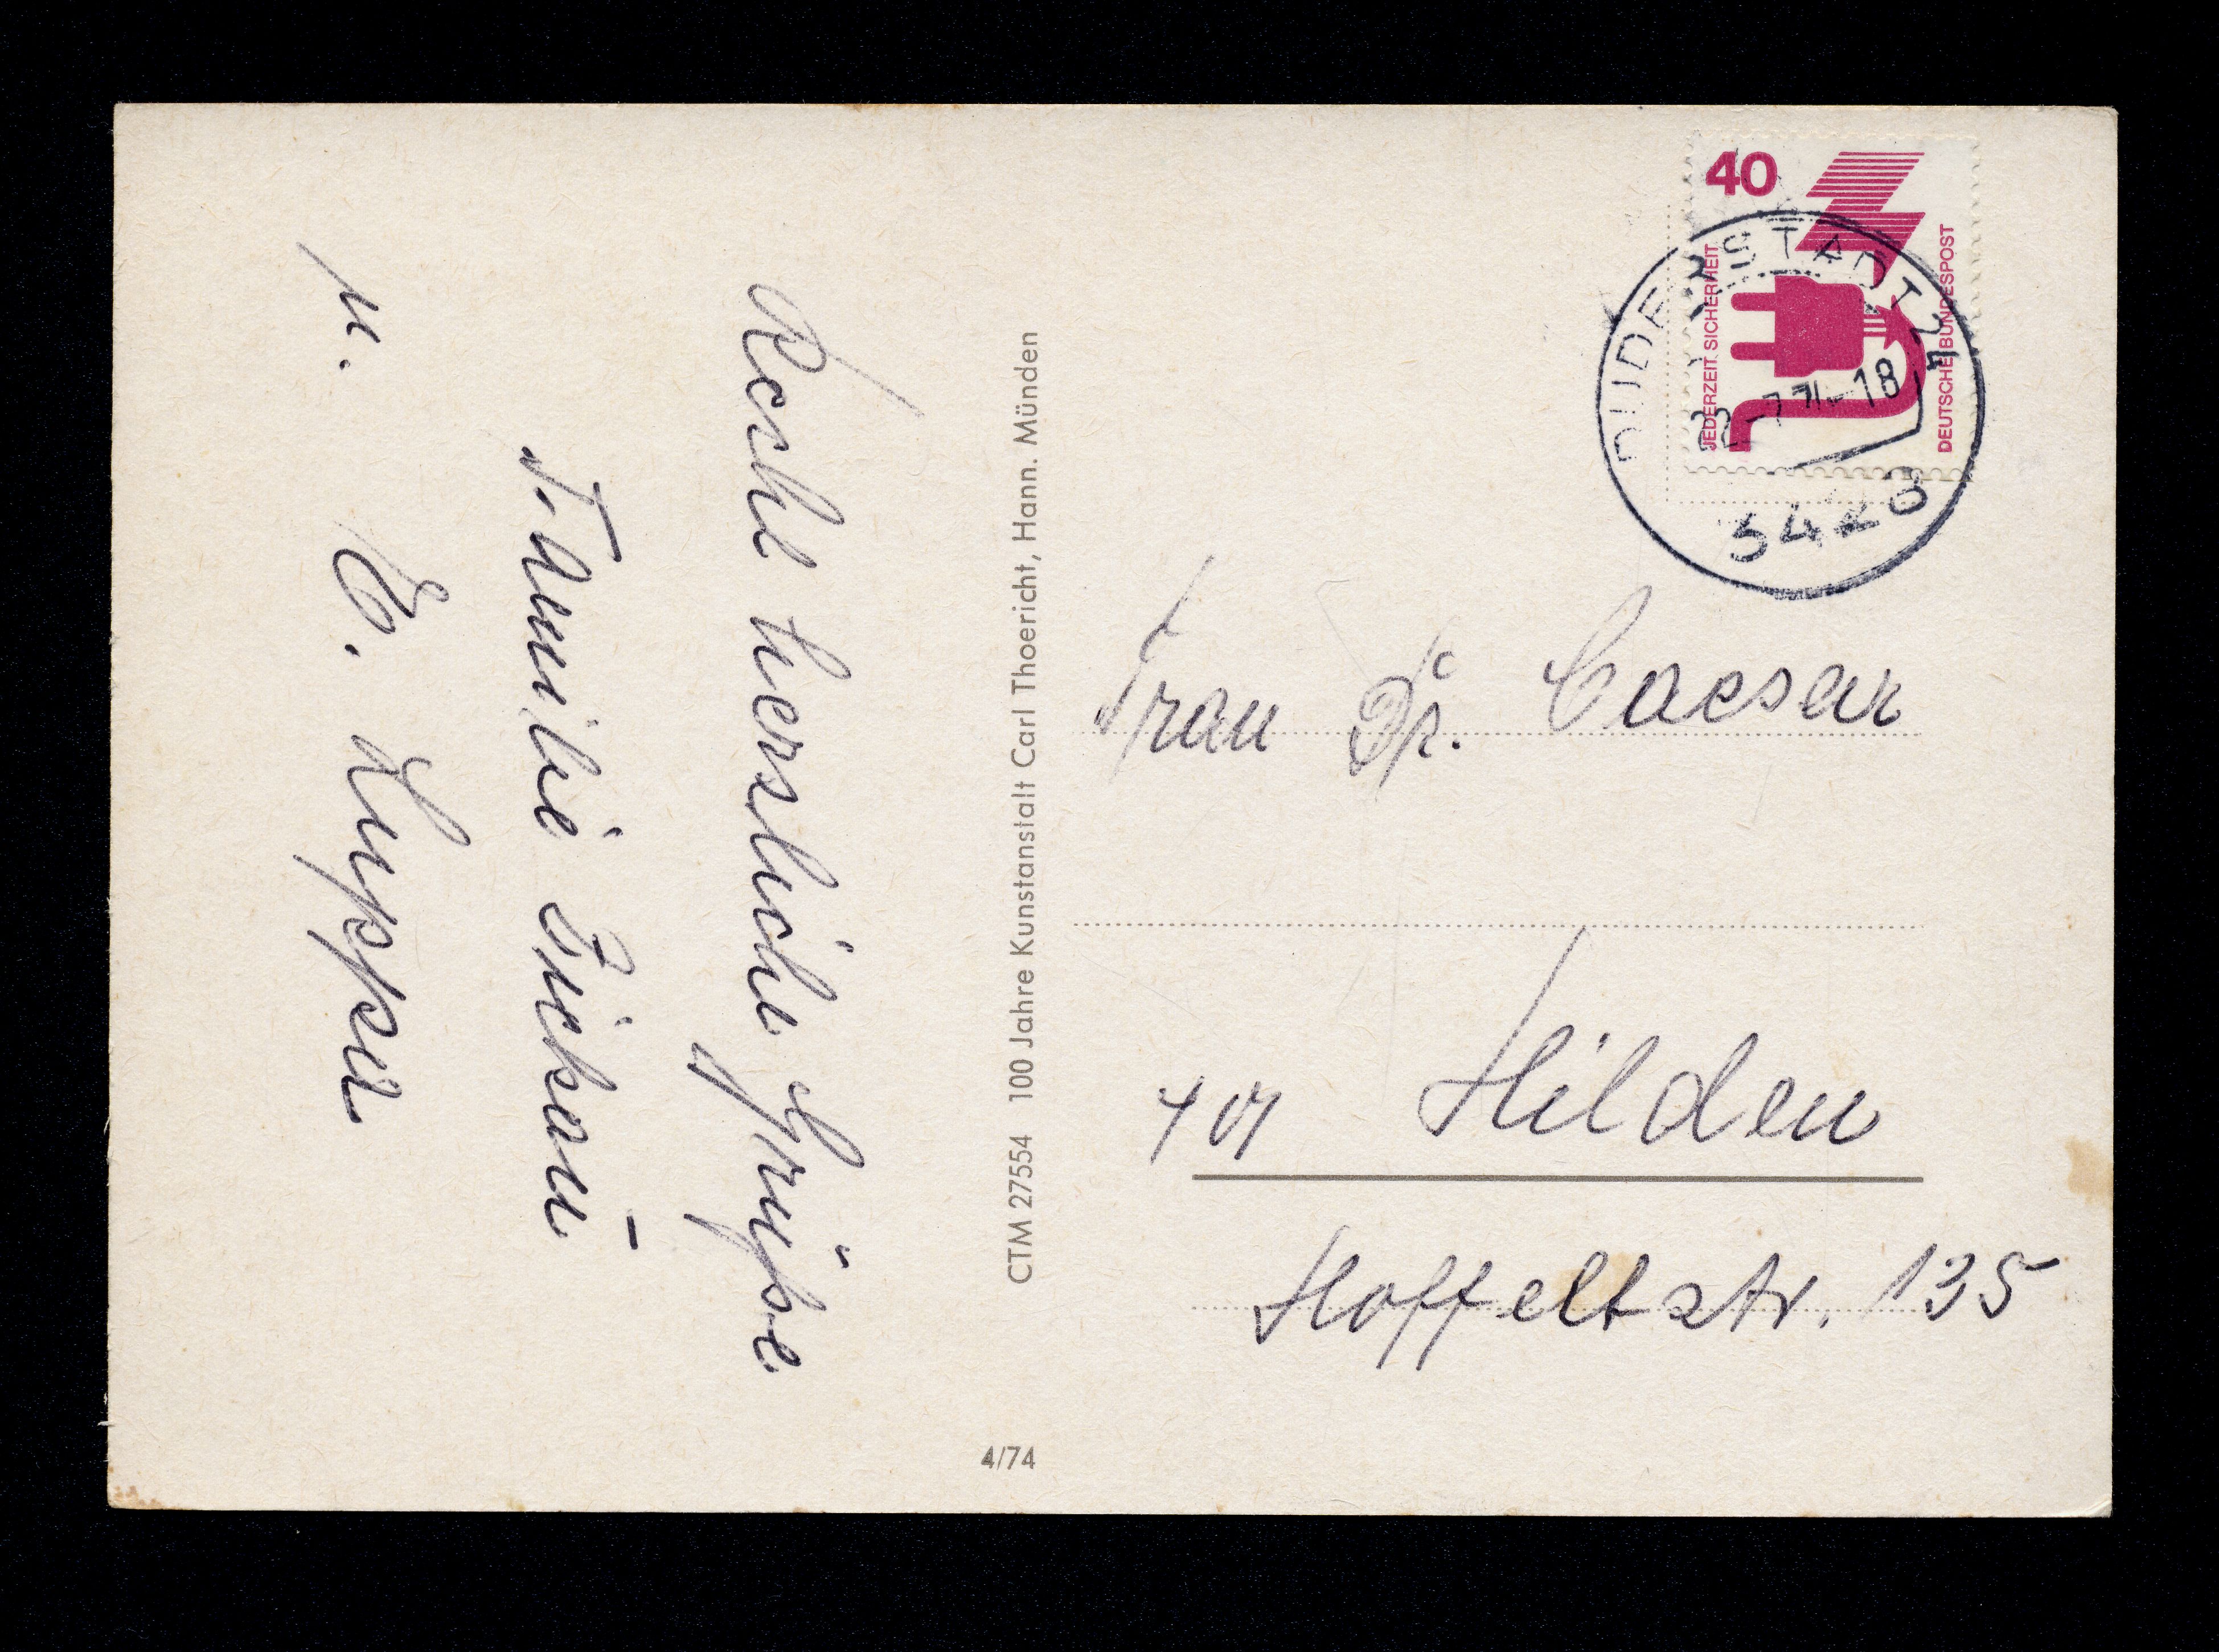 Recht herzliche Grüße
Familie
u. E. Kupper
CTM 27554 100 Jahre Kunstanstalt Carl Thoericht, Hann. Münden
4/74
40
JEDERZEIT SICHERHEIT
DEUTSCHE BUNDESPOST
DUDERSTADT 1
-18
3428
Frau Dr. Caesar
401 Hilden
Hoffeltstr. 135